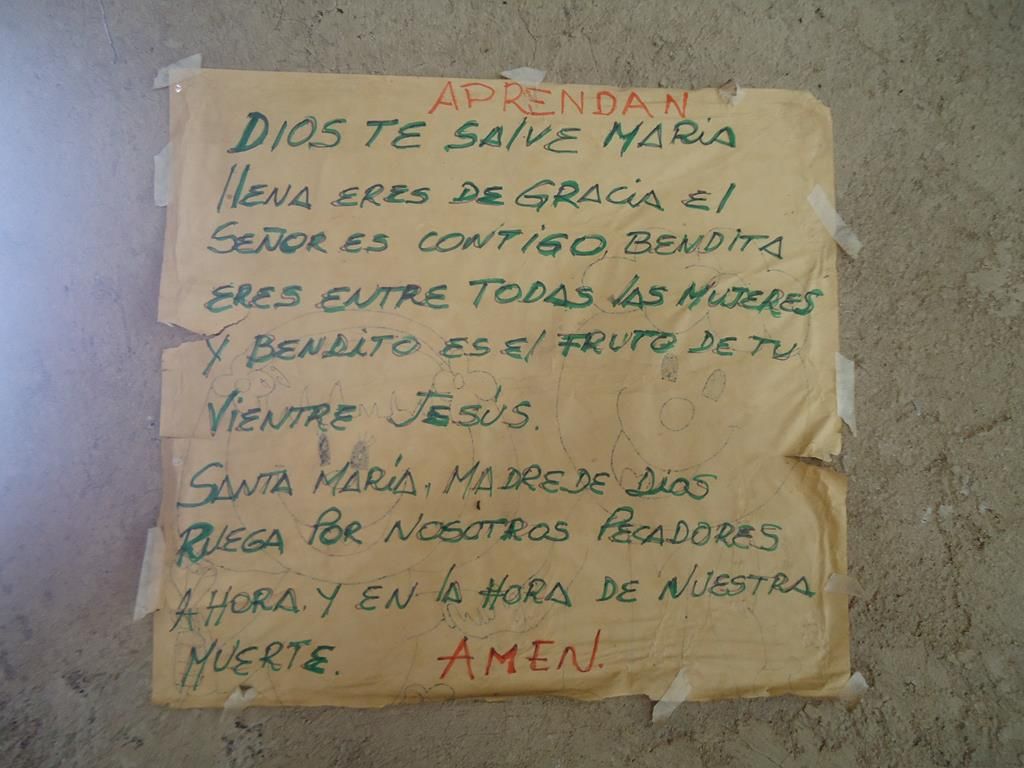 APRENDAN
DIOS TE SAlVE MARIA
llENA ERES DE GRACIA El
SEÑOR ES CONTIGO, BENDITA
ERES ENTRE TODAS lAS MUJERES
Y BENDITO ES El FRUTO DE TU
VIENTRE JESÚS.
SANTA MARÍA, MADRE DE DIOS
RUEGA POR NOSOTROS PECADORES
AHORA. Y EN lA HORA DE NUESTRA
MUERTE. AMEN.